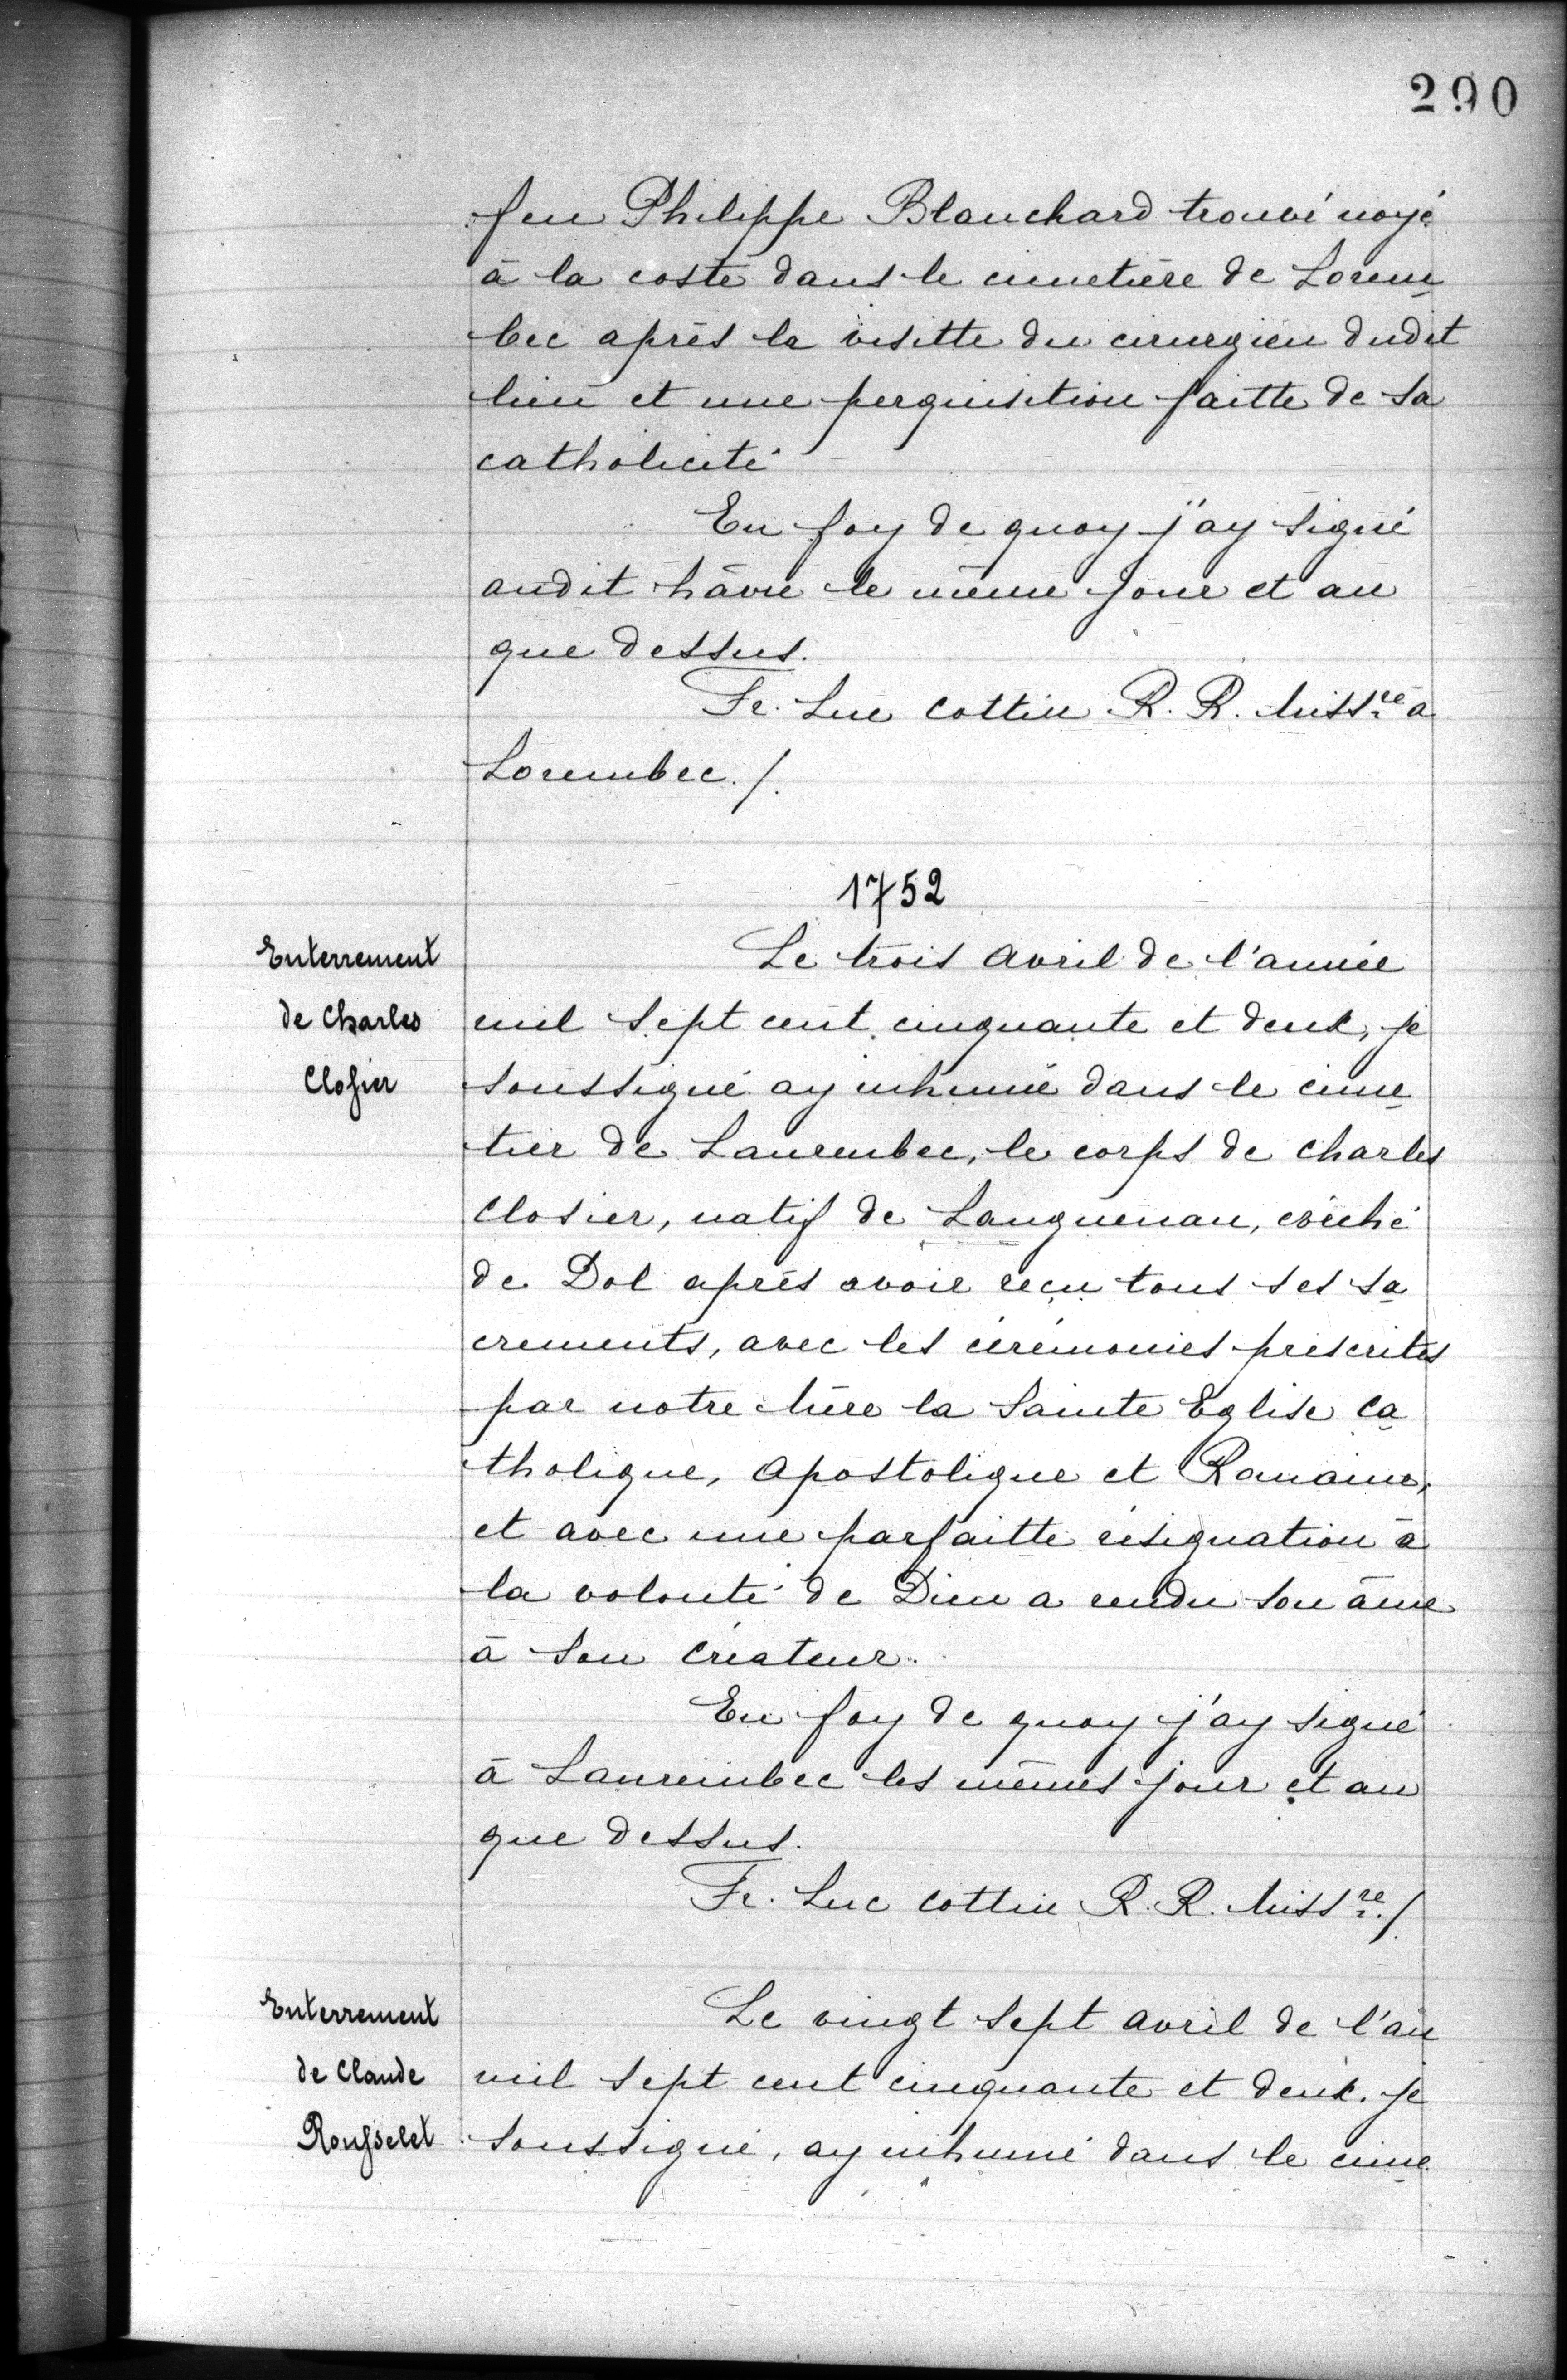 290
feu Philippe Blanchard trouvé noyé
à la coste dans le cimetière de Lorem
bec après la visitte du cirurgien dudit
lieu et une perquisition faitte de sa
catholicité
En foy de quoy j'ay signé
audit hâvre le même jour et an
que dessus.
Fr. Luc Cottin R. R. Miss.re à
Lorembec./.
1752
Enterrement
de Charles
Closier
Le trois Avril de l'année
mil sept cent cinquante et deux, je
soussigné ay inhumé dans le cime
tier de Laurembec, le corps de Charles
Closier, natif de Languenan, évêché
de Dol après avoir reçu tous ses sa
crements, avec les cérémonies prescrites
par notre Mère la Sainte Eglise Ca
tholique, Apostolique et Romaine,
et avec une parfaitte résignation à
la volonté de Dieu a rendu son âme
à son Créateur.
En foy de quoy j'ay signé
à Laurembec les mêmes jour et an
que dessus.
Fr. Luc Cottin R. R. Miss.re./.
Enterrement
de Claude
Rousselet
Le vingt sept Avril de l'an
mil sept cent cinquante et deux. je
soussigné, ay inhumé dans le cime